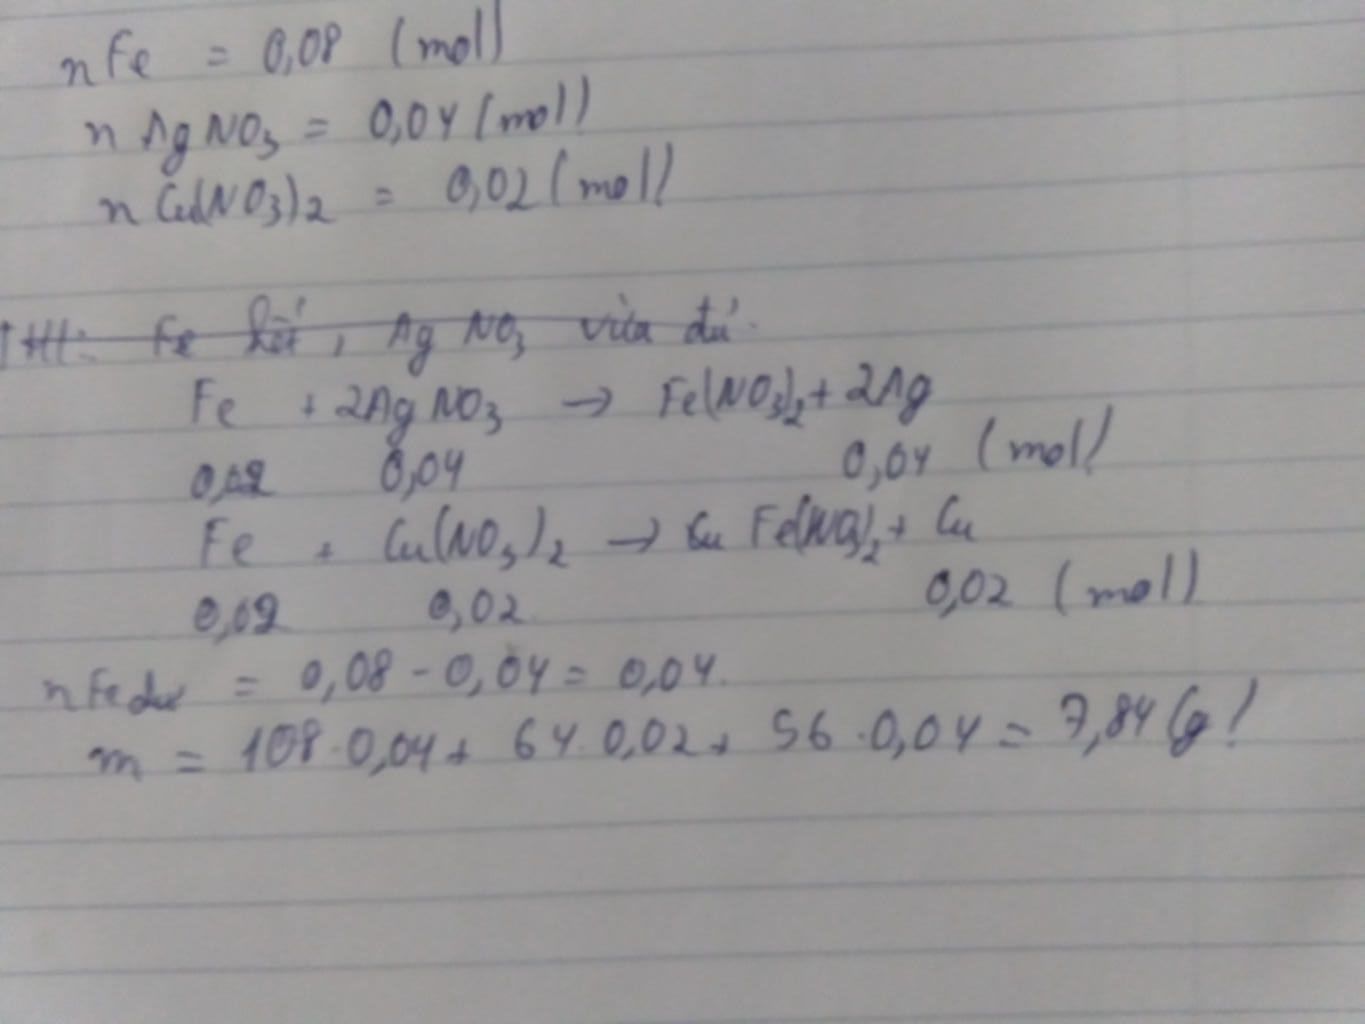 nFe = 0,08 (mol)
nAgNO3 = 0,04 (mol)
nCu(NO3)2 = 0,02 (mol)
TH1: Fe hết, AgNO3 vừa đủ.
Fe + 2AgNO3 → Fe(NO3)2 + 2Ag
0,02 0,04 0,04 (mol)
Fe + Cu(NO3)2 → Cu Fe(NO3)2 + Cu
0,02 0,02 0,02 (mol)
nFe dư = 0,08 - 0,04 = 0,04.
m = 108.0,04 + 64.0,02 + 56.0,04 = 7,84 (g)